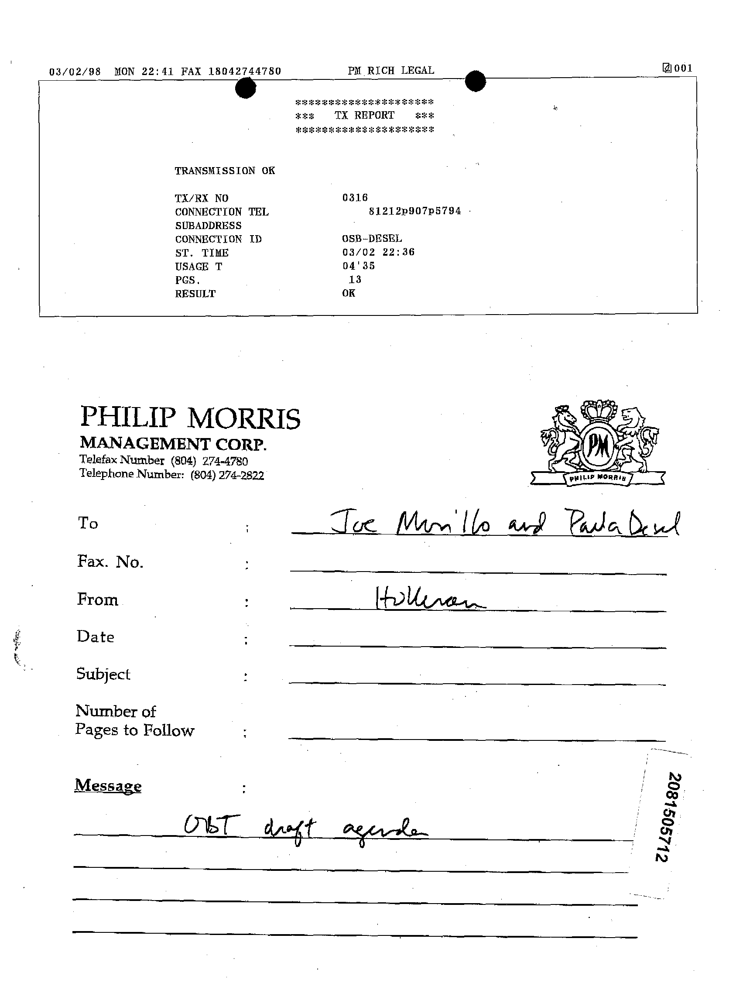 03/02/98 MON 22:41 FAX 18042744780 PM RICH LEGAL 001
*********************
*** TX REPORT ***
*********************
TRANSMISSION OK
TX/RX NO 0316
CONNECTION TEL 81212p907p5794
SUBADDRESS
CONNECTION ID OSB-DESEL
ST. TIME 03/02 22:36
USAGE T 04'35
PGS. 13
RESULT OK
PHILIP MORRIS
MANAGEMENT CORP.
Telefax Number (804) 274-4780
Telephone Number: (804) 274-2822
PM
PHILIP MORRIS
To : Joe Murillo and Paula Desel
Fax. No. :
From : Holleran
Date :
Subject :
Number of
Pages to Follow :
Message :
draft agenda
2081505712